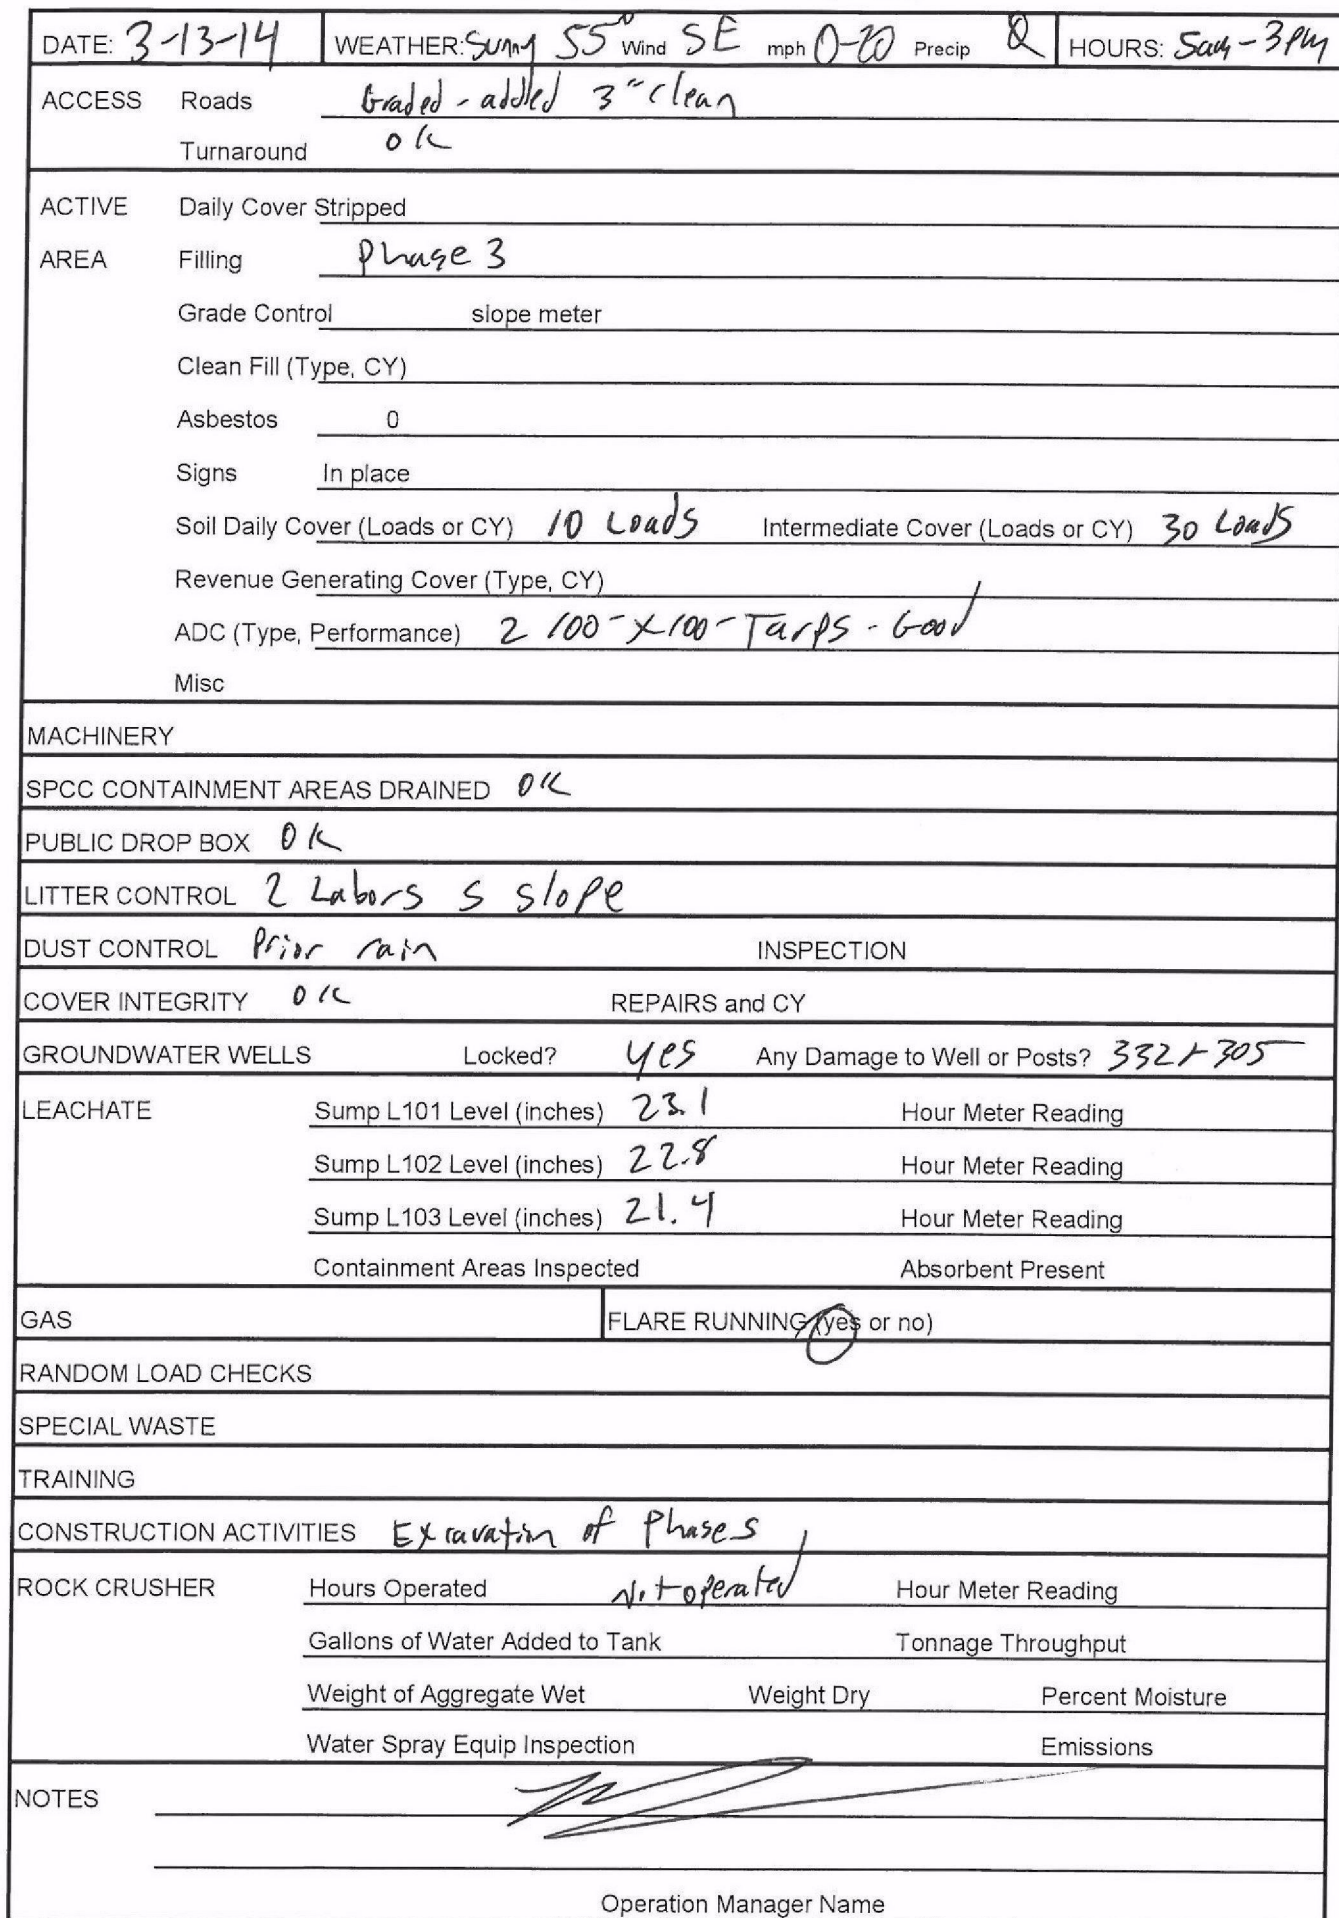 DATE: 3-13-14 WEATHER: Sunny 55° Wind SE mph 0-20 Precip 0 HOURS: 5am-3pm
ACCESS Roads Graded - added 3" clean
Turnaround OK
ACTIVE Daily Cover Stripped
AREA Filling Phase 3
Grade Control slope meter
Clean Fill (Type, CY)
Asbestos 0
Signs In place
Soil Daily Cover (Loads or CY) 10 Loads Intermediate Cover (Loads or CY) 30 Loads
Revenue Generating Cover (Type, CY)
ADC (Type, Performance) 2 100-x100-Tarps - Good
Misc
MACHINERY
SPCC CONTAINMENT AREAS DRAINED OK
PUBLIC DROP BOX OK
LITTER CONTROL 2 Labors S slope
DUST CONTROL Prior rain INSPECTION
COVER INTEGRITY OK REPAIRS and CY
GROUNDWATER WELLS Locked? yes Any Damage to Well or Posts? 332 + 305
LEACHATE Sump L101 Level (inches) 23.1 Hour Meter Reading
Sump L102 Level (inches) 22.8 Hour Meter Reading
Sump L103 Level (inches) 21.4 Hour Meter Reading
Containment Areas Inspected Absorbent Present
GAS FLARE RUNNING (yes or no)
RANDOM LOAD CHECKS
SPECIAL WASTE
TRAINING
CONSTRUCTION ACTIVITIES Excavation of Phase
ROCK CRUSHER Hours Operated Not operated Hour Meter Reading
Gallons of Water Added to Tank Tonnage Throughput
Weight of Aggregate Wet Weight Dry Percent Moisture
Water Spray Equip Inspection Emissions
NOTES
Operation Manager Name